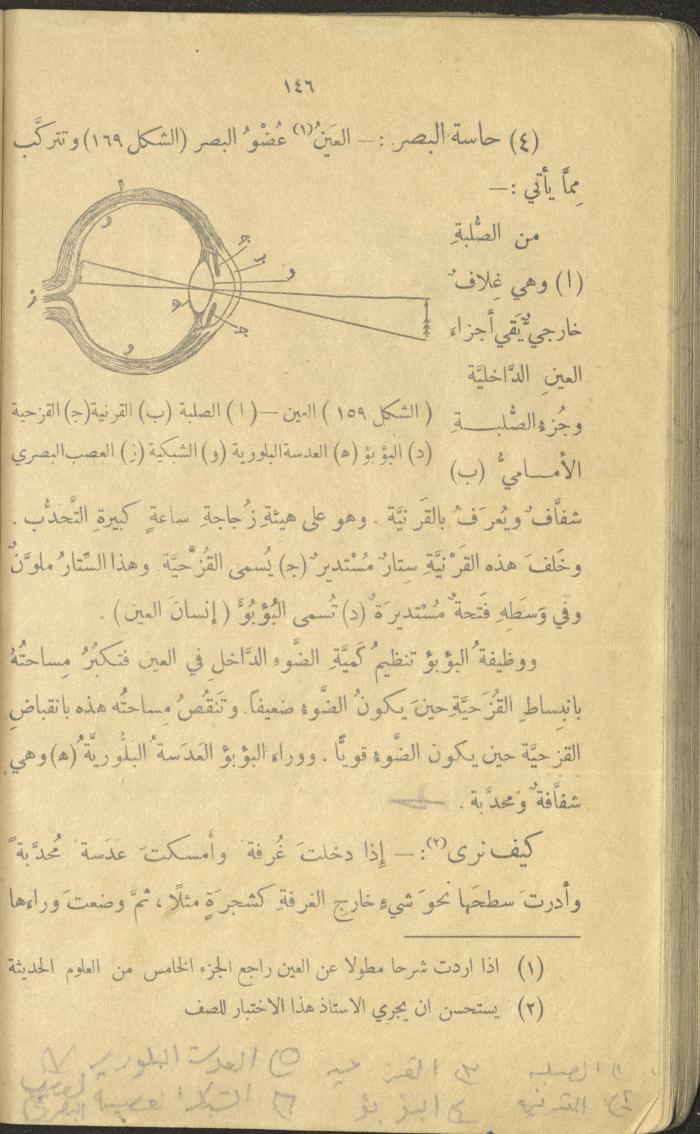 ١٤٦
(٤) حاسة البصر :— العَينُ(١) عُضْوُ البصر (الشكل ١٦٩) وتتركَّب
مِمَّا يأتي :—
من الصُّلبةِ
(ا) وهي غِلافٌ
خارجيٌّ يَقي أجزاءَ
العينِ الدَّاخليَّة
وجُزءُ الصُّلبــــةِ
الأمـــاميُّ (ب)
ا
و
ج
ب
د
ز
ه
ج
و
(الشكل ١٥٩) العين — (ا) الصلبة (ب) القرنية (ج) القزحية
(د) البؤبؤ (ه) العدسة البلورية (و) الشبكية (ز) العصب البصري
شفَّافٌ ويُعرَفُ بالقَرْنيَّة . وهو على هيئةِ زُجاجةِ ساعةٍ كبيرةِ التَّحدُّب .
وخَلفَ هذه القَرْنيَّةِ سِتارٌ مُسْتديرٌ (ج) يُسمى القُزَحيَّة. وهذا السِّتارُ ملوَّنٌ
وفي وَسَطِهِ فَتحةٌ مُسْتديرَةٌ (د) تُسمى البُؤْبُؤَ (إنسانَ العين) .
ووظيفةُ البؤبؤ تنظيمُ كَميَّةِ الضَّوءِ الدَّاخلِ في العين فتكبُرُ مِساحتُهُ
بانبِساطِ القُزَحيَّةِ حينَ يكونُ الضَّوءُ ضعيفاً. وتَنقُصُ مِساحتُه هذه بانقباضِ
القزحيَّة حين يكون الضَّوءُ قويًّا . ووراءَ البؤبؤ العَدَسةُ البَلُّوريَّةُ (ه) وهي
شفَّافةٌ ومحدَّبة .
كيف نرى(٢) :— إِذا دخلتَ غُرفة وأَمسكتَ عَدَسة مُحدَّبةً
وأدرتَ سطحَها نحوَ شيءٍ خارج الغرفةِ كشجرَةٍ مثلًا ، ثمَّ وضعتَ وراءها
(١) اذا اردت شرحا مطولا عن العين راجع الجزء الخامس من العلوم الحديثة
(٢) يستحسن ان يجري الاستاذ هذا الاختبار للصف
١ الصلبه ٣ القزحيه ٥ العدسة البلوريه ٧ العصب البصري
٢ القرنيه ٤ البؤبؤ ٦